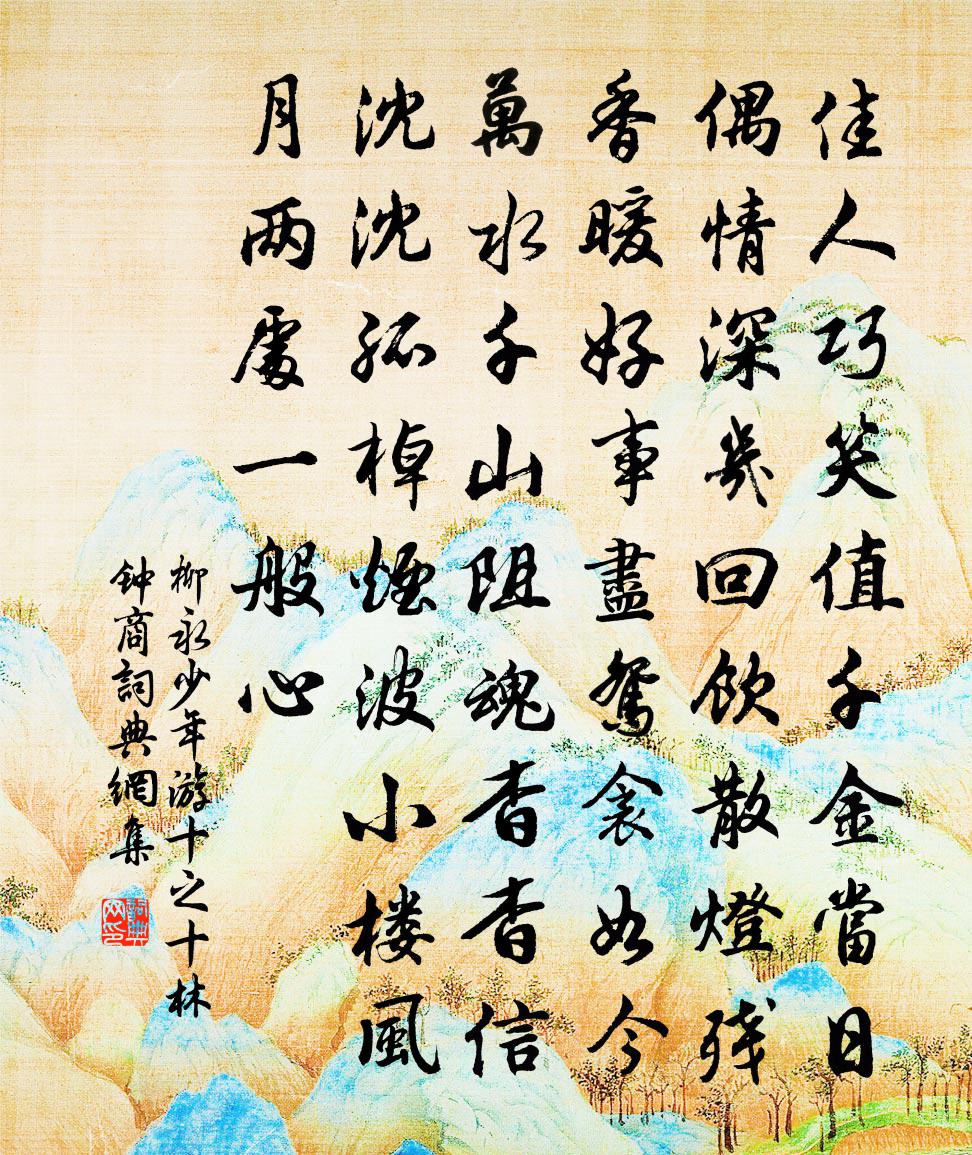 佳人巧笑值千金當日
偶情深幾回飲散燈残
香暖好事盡鴛衾如今
萬水千山阻魂杳杳信
沈沈孤棹煙波小楼風
月两處一般心
柳永少年游十之十林
钟商詞典網集
詞典网印